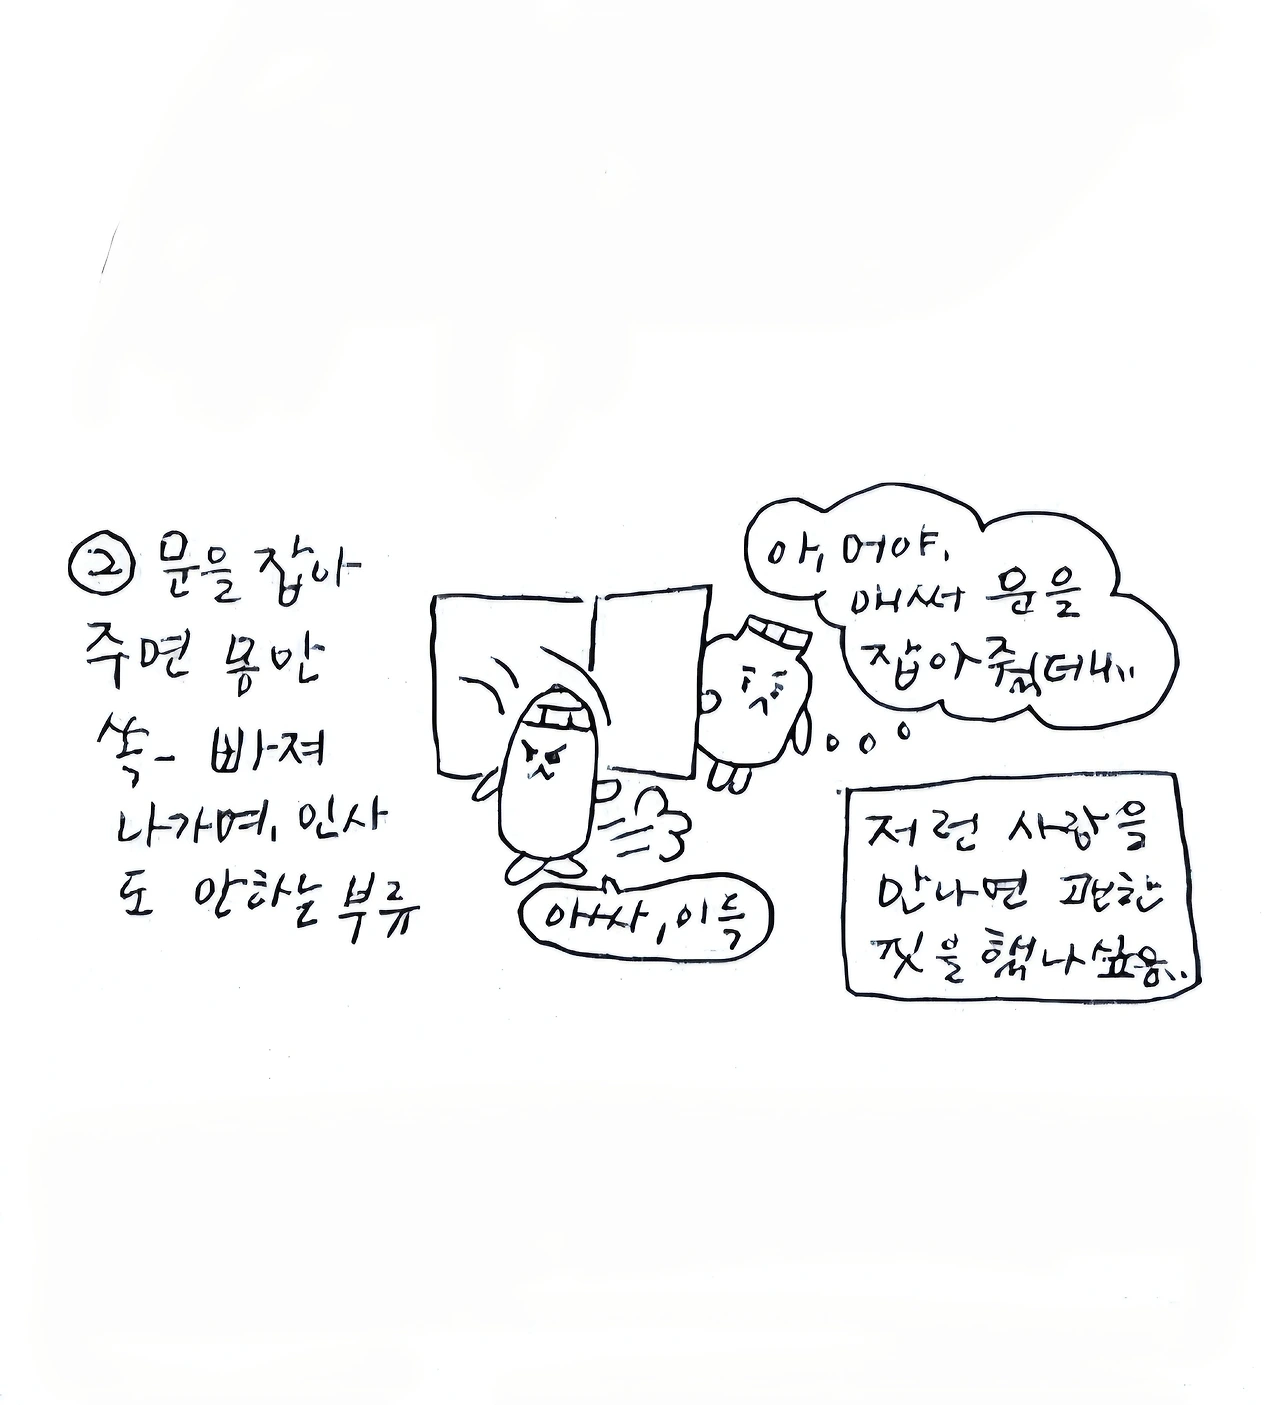 ② 문을 잡아
주면 몸만
쏙- 빠져
나가며, 인사
도 안하는 부류
아, 머야.
애써 문을
잡아줬더니..
아싸, 이득
저런 사람을
만나면 괜한
짓을 했나 싶음..